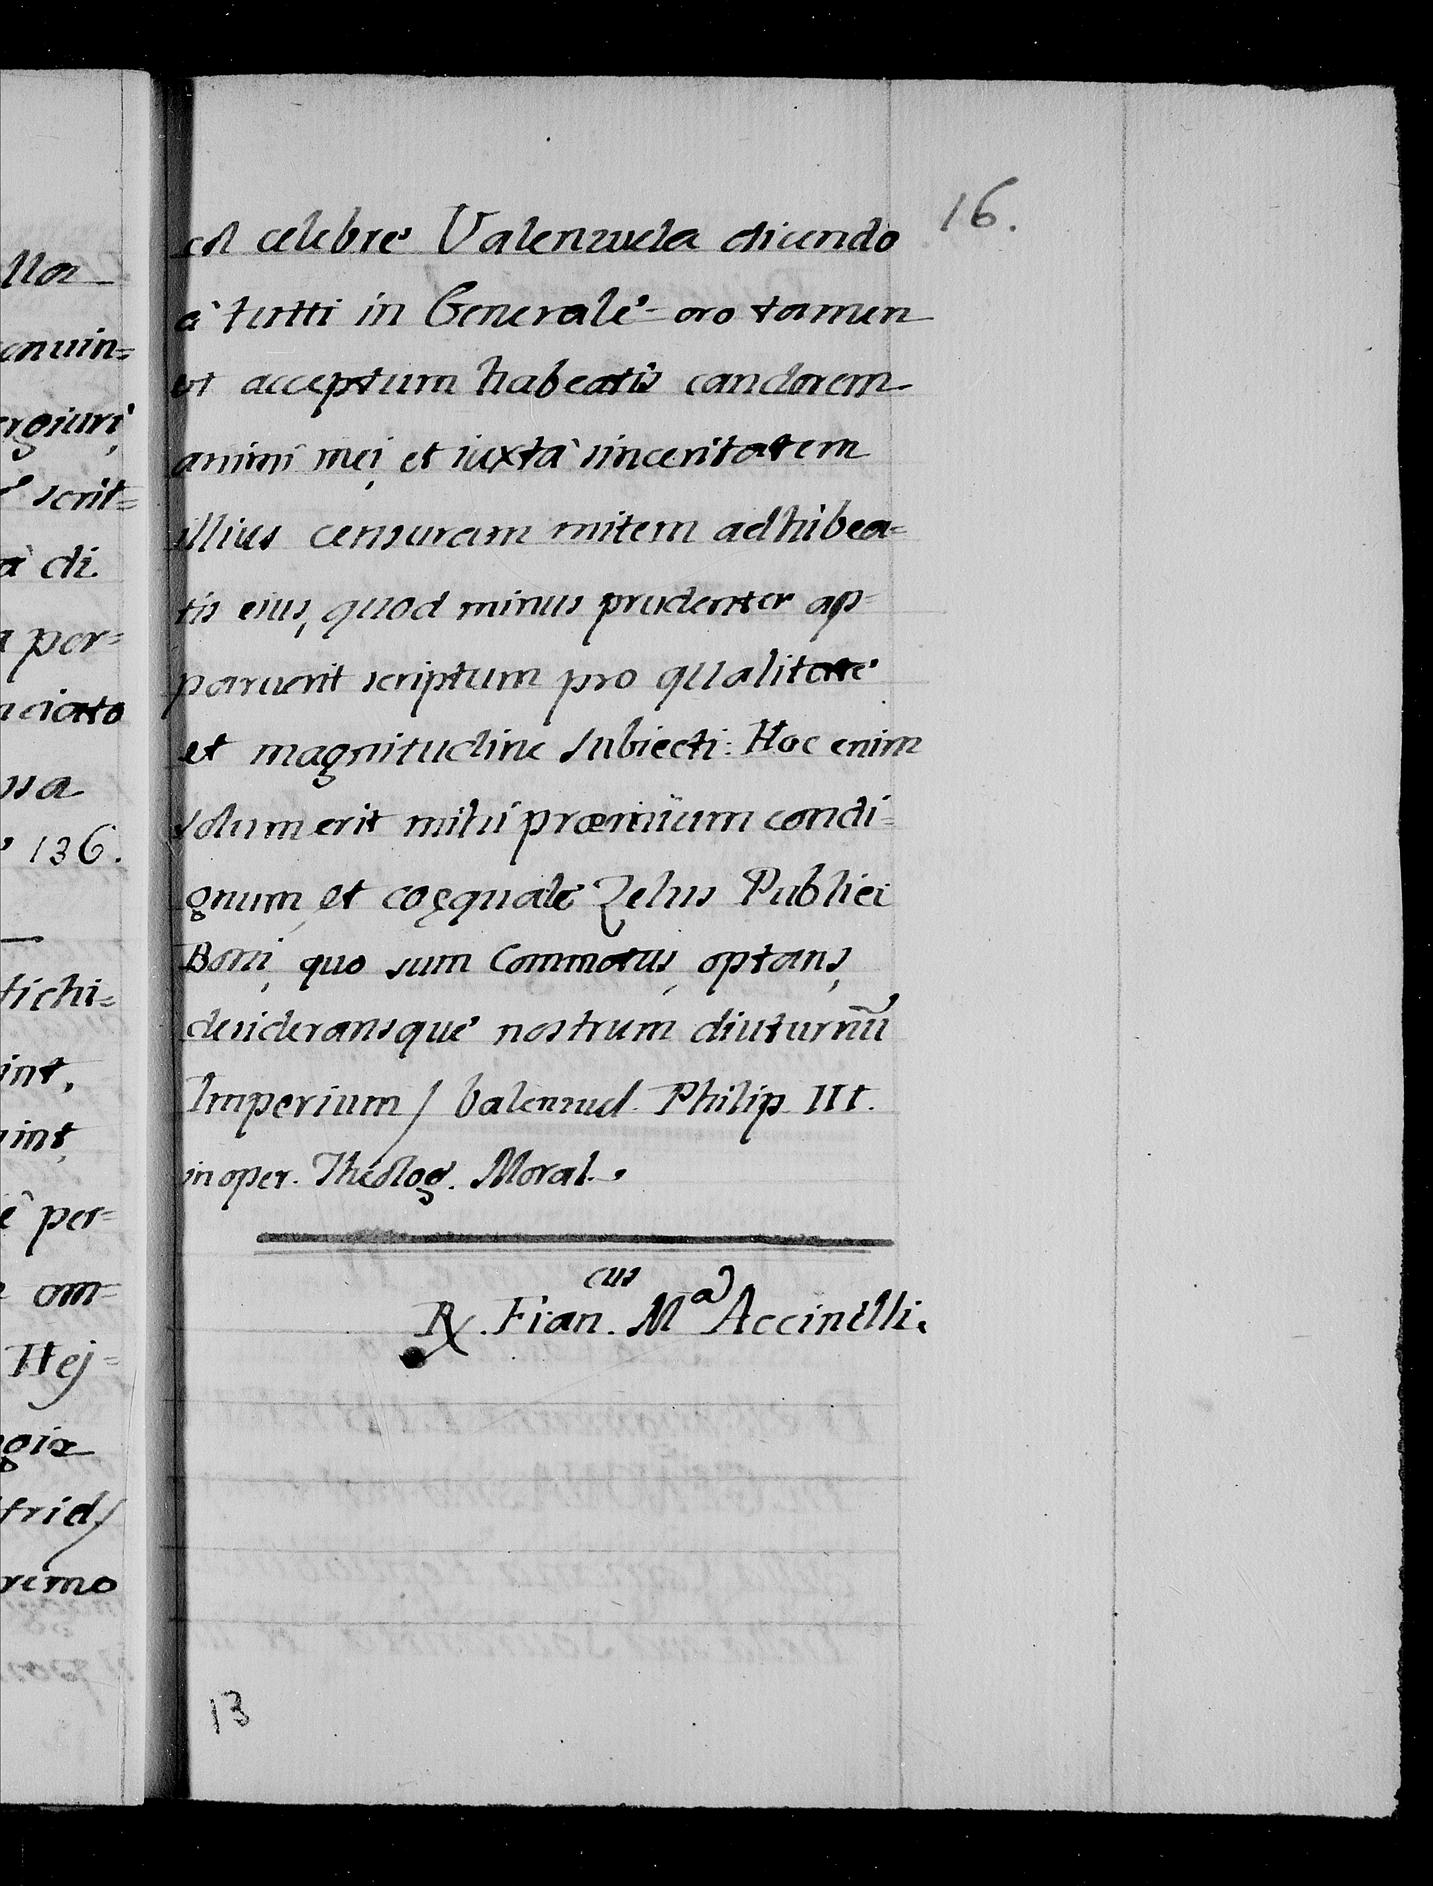 16.
col celebre Valenzuela dicendo
à tutti in Generale - oro tamen
ut acceptum habeatis candorem
animi mei, et iuxtà sinceritatem
illius censuram mitem adhibea=
tis eius, quod minus prudenter ap=
paruerit scriptum pro qualitate
et magnitudine subiecti: Hoc enim
solum erit mihi præmium condi=
gnum, et coęquale Zelus Publici
Boni, quo sum Commotus, optans,
desideransque nostrum diuturnū
Imperium / Valenzuel. Philip. III.
in oper. Theolog. Moral.
R. Fran.cus M.a Accinelli.
13
lla
ergiuri,
scrit=
à di
a per=
nciato
136.
tichi=
int,
è per=
om=
Hej=
gix
frid/
remo